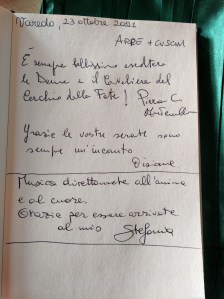 Varedo, 23 ottobre 2021
ARPE + CUSCINI
È sempre bellissimo ascoltare
le Dame e il Cavaliere del
Cerchio delle Fate! Piera C.
Grazie le vostre serate sono
sempre un'incanto
Disane
Musica direttamente all'anima
e al cuore.
Grazie per essere arrivate
al mio Stefania